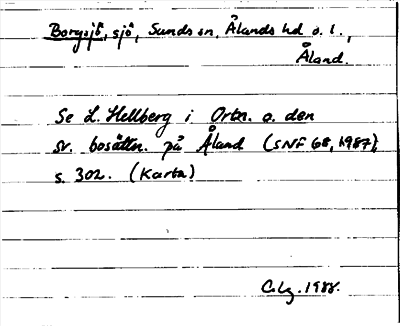 Borgsjö, sjö, Sunds sn, Ålands hd o. l.,
Åland.
Se L. Hellberg i Ortn. o. den
sv. bosättn. på Åland (SNF 68, 1987),
s. 302. (Karta)
1988.